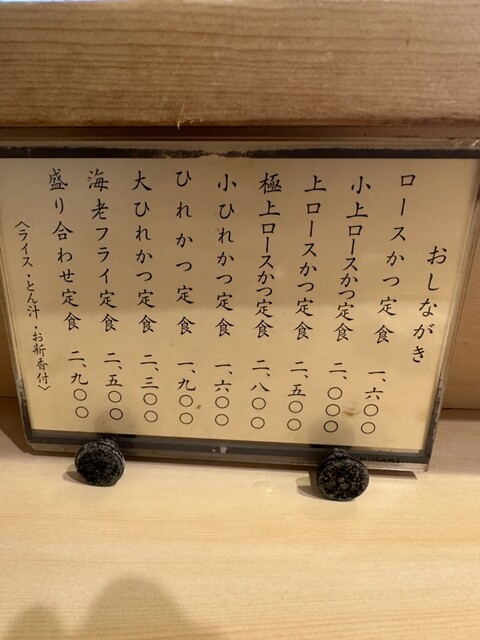 おしながき
ロースかつ定食 一、六〇〇
小上ロースかつ定食 二、〇〇〇
上ロースかつ定食 二、五〇〇
極上ロースかつ定食 二、八〇〇
小ひれかつ定食 一、六〇〇
ひれかつ定食 一、九〇〇
大ひれかつ定食 二、三〇〇
海老フライ定食 二、五〇〇
盛り合わせ定食 二、九〇〇
〈ライス・とん汁・お新香付〉